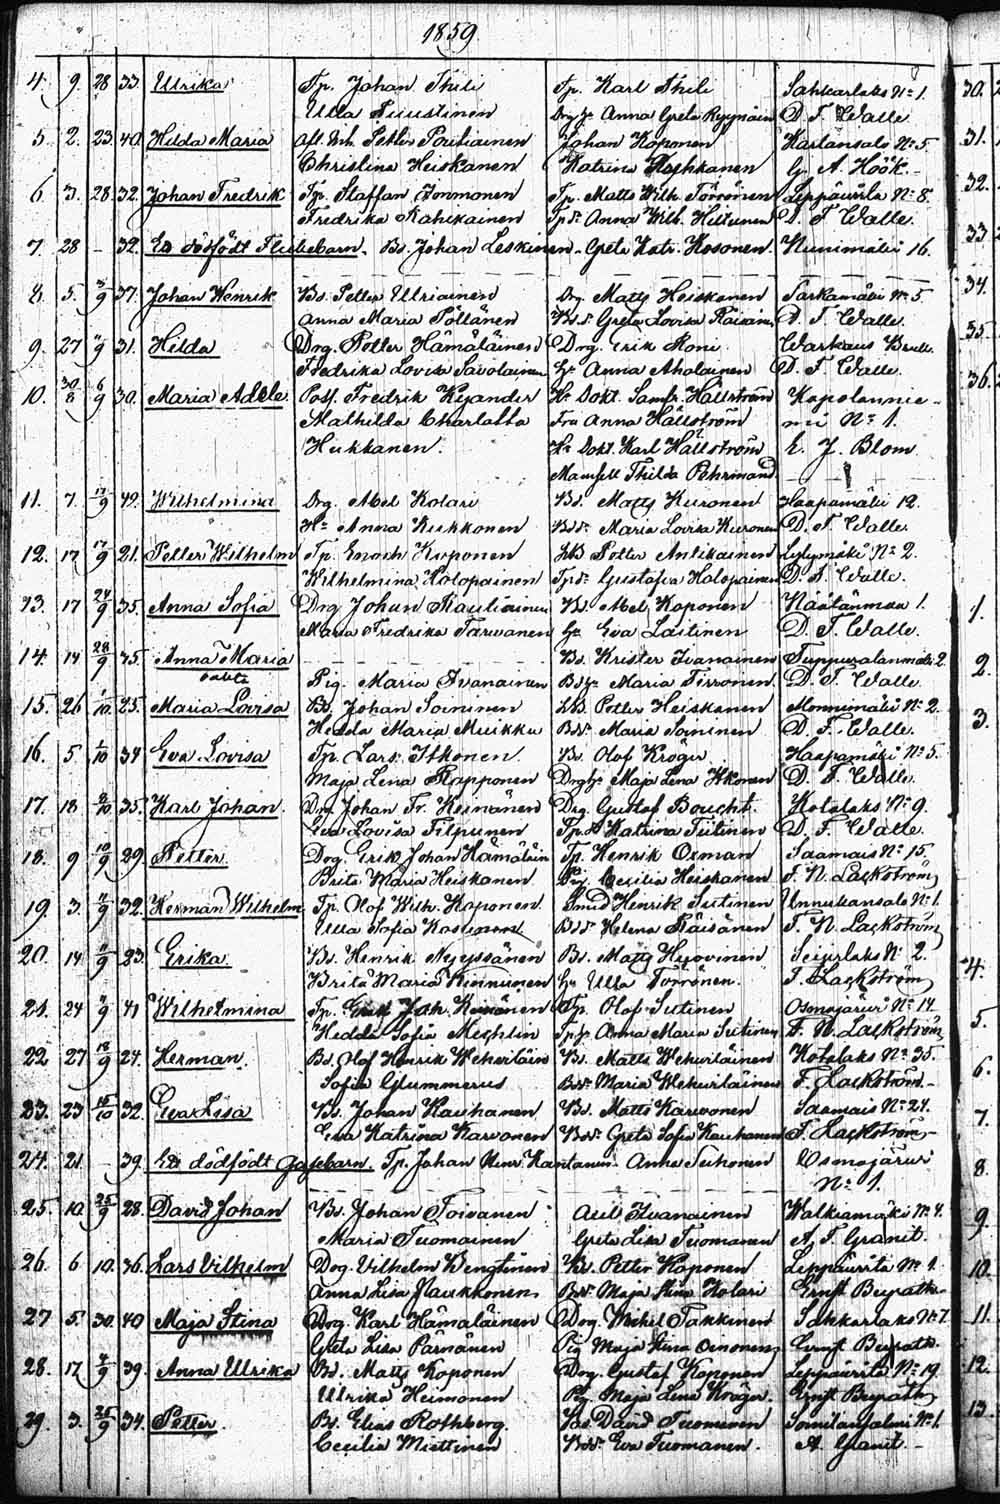 1859
4. 9. 28 33. Ulrika Tp. Johan Thili Tp. Karl Thili Sahkarlaks No 1.
Ulla Tuustinen Anna Greta D. F. Walle
5. 2. 23. 40. Hilda Maria Petter Poutiainen Johan Koponen Kartansalo No 5
Christina Heiskanen Katrina G. A. Höök.
6. 3. 28 32. Johan Fredrik Tp. Staffan Tp. Matts Wilh. Törrönen Leppäwirta No 8.
Fredrika Kahikainen Anna Wilh. Hiltunen D. F. Walle.
7. 28 - 32. dödfödt Flickebarn. Bs. Johan Leskinen. Greta Katr. Kosonen. Nunimäki 16.
8. 5. 4/9 37. Johan Henrik Bs. Petter Ulriainen Drg. Matts Heiskanen Sarkamäki No 5.
Anna Maria Pöllänen Greta Lovisa Räisänen D. F. Walle.
9. 27 31. Hilda Drg. Petter Hämäläinen Drg. Erik Moni Warkaus Bruk.
Fredrika Lovisa Savolainen Hu Anna Aholainen D. F. Walle.
10. 30/8 6/9 30. Maria Adele Poss. Fredrik Kyander Hr Dokt. Samfr. Hällström Kapolannie-
Mathilda Charlotta Fru Anna Hällström mi No 1.
Hukkanen. Hr Dokt. Karl Hällström L. J. Blom
Mamsell Thilda Pehrmand
11. 7. 11/9 42. Wilhelmina Drg. Abel Kolari Bs. Matts Kuronen Haapamäki 12.
Hu Anna Kukkonen Maria Lovisa Kuronen D. F. Walle.
12. 17 17/9 21. Petter Wilhelm Tp. Enoch Koponen Petter Antikainen No 2.
Wilhelmina Holopainen Gustafva Holopainen D. F. Walle.
13. 17 24/9 35. Anna Sofia Drg Johan Rautiainen Bs. Abel Koponen Näätänmaa 1.
Maria Fredrika Tarvanen Hu Eva Laitinen D. F. Walle.
14. 14 28/9 45. Anna Maria Bs. Krister Ivanainen 2.
oäkta Pig. Maria Ivanainen Maria Tirronen. D. F. Walle.
15. 26 1/10 25. Maria Lovisa Bs. Johan Soininen Petter Heiskanen Monnimäki No 2.
Hedda Maria Muikku Maria Soininen D. F. Walle.
16. 5 1/10 34 Eva Lovisa Tp. Lars Itkonen. Bs. Olof Kröger Haapamäki No 5.
Maja Lena Rapponen Maja Lena Itkonen D. F. Walle.
17. 18 2/10 35. Karl Johan. Drg Johan Fr. Heinänen Drg. Gustaf Boucht Kotalaks No 9.
Eva Lovisa Filpunen Katrina Tiitinen D. F. Walle.
18. 9 10/9 29. Petter. Drg. Erik Johan Hämäläin Tp. Henrik Oxman Saamais No 15.
Brita Maria Heiskanen Cecilia Heiskanen F. N. Lackström
19. 3. 11/9 32. Herman Wilhelm Tp. Olof Wilh. Koponen Smed Henrik Sutinen Unnukansalo No 1.
Ulla Sofia Kosunen Helena Räisänen F. N. Lackström
20. 14 11/9 23. Erika. Bs. Henrik Nyyssänen Bs. Matts Hyvönen No 2.
Brita Maria Kinnunen Hu Ulla Törrönen. F. Lackström
21. 24 11/9 41 Wilhelmina Tp. Joh. Keinänen Tp. Olof Sutinen Osmajärvi No 14.
Hedda Sofia Mechlin Anna Maria Sutinen F. N. Lackström
22 27 18/9 24. Herman. Bs. Olof Henrik Wehviläin Bs. Matts Wehviläinen Kotalaks No 35.
Sofia Glummerus Maria Wehviläinen F. Lackström.
23. 23 16/10 32. Eva Lisa Bs. Johan Kauhanen Bs. Matts Karvonen Saamais No 24.
Eva Katrina Karvonen Greta Sofia Kauhanen F. Lackström
24. 21 - 39. dödfödt Gossebarn. Tp. Johan Henr. Kantanen. Anna Suhonen Osmajärvi
No 1.
25. 10. 25/9 28. David Johan Bs. Johan Toivanen Axel Ivanainen Walkiamäki No 4.
Maria Tuomainen Greta Lisa Tuomanen A. F. Granit.
26. 6 10. 36. Lars Vilhelm Drg. Vilhelm Wengtinen Bs. Petter Koponen Leppäwirta No 1.
Anna Lisa Maja Stina Kolari Ernst
27 5. 30. 40 Maja Stina Drg. Karl Hämäläinen Drg. Mikel Takkinen Sahkarlaks No 7.
Greta Lisa Pärnänen Pig Maja Stina Oinonen Ernst
28. 17 4/9 39. Anna Ulrika Bs. Matts Koponen Drg. Gustaf Koponen Leppäwirta No 19
Ulrika Heimonen Pig. Maja Lena Kröger Ernst
29. 3. 25/9 34. Petter. Bs. Elias Rothberg. Bs. David Tuomanen Soinilansalmi No 1.
Cecilia Miettinen Eva Tuomanen. A. Granit
30.
31.
32.
33
34.
35.
36.
1.
2.
3.
4.
5.
6.
7.
8.
9.
10.
11.
12.
13.